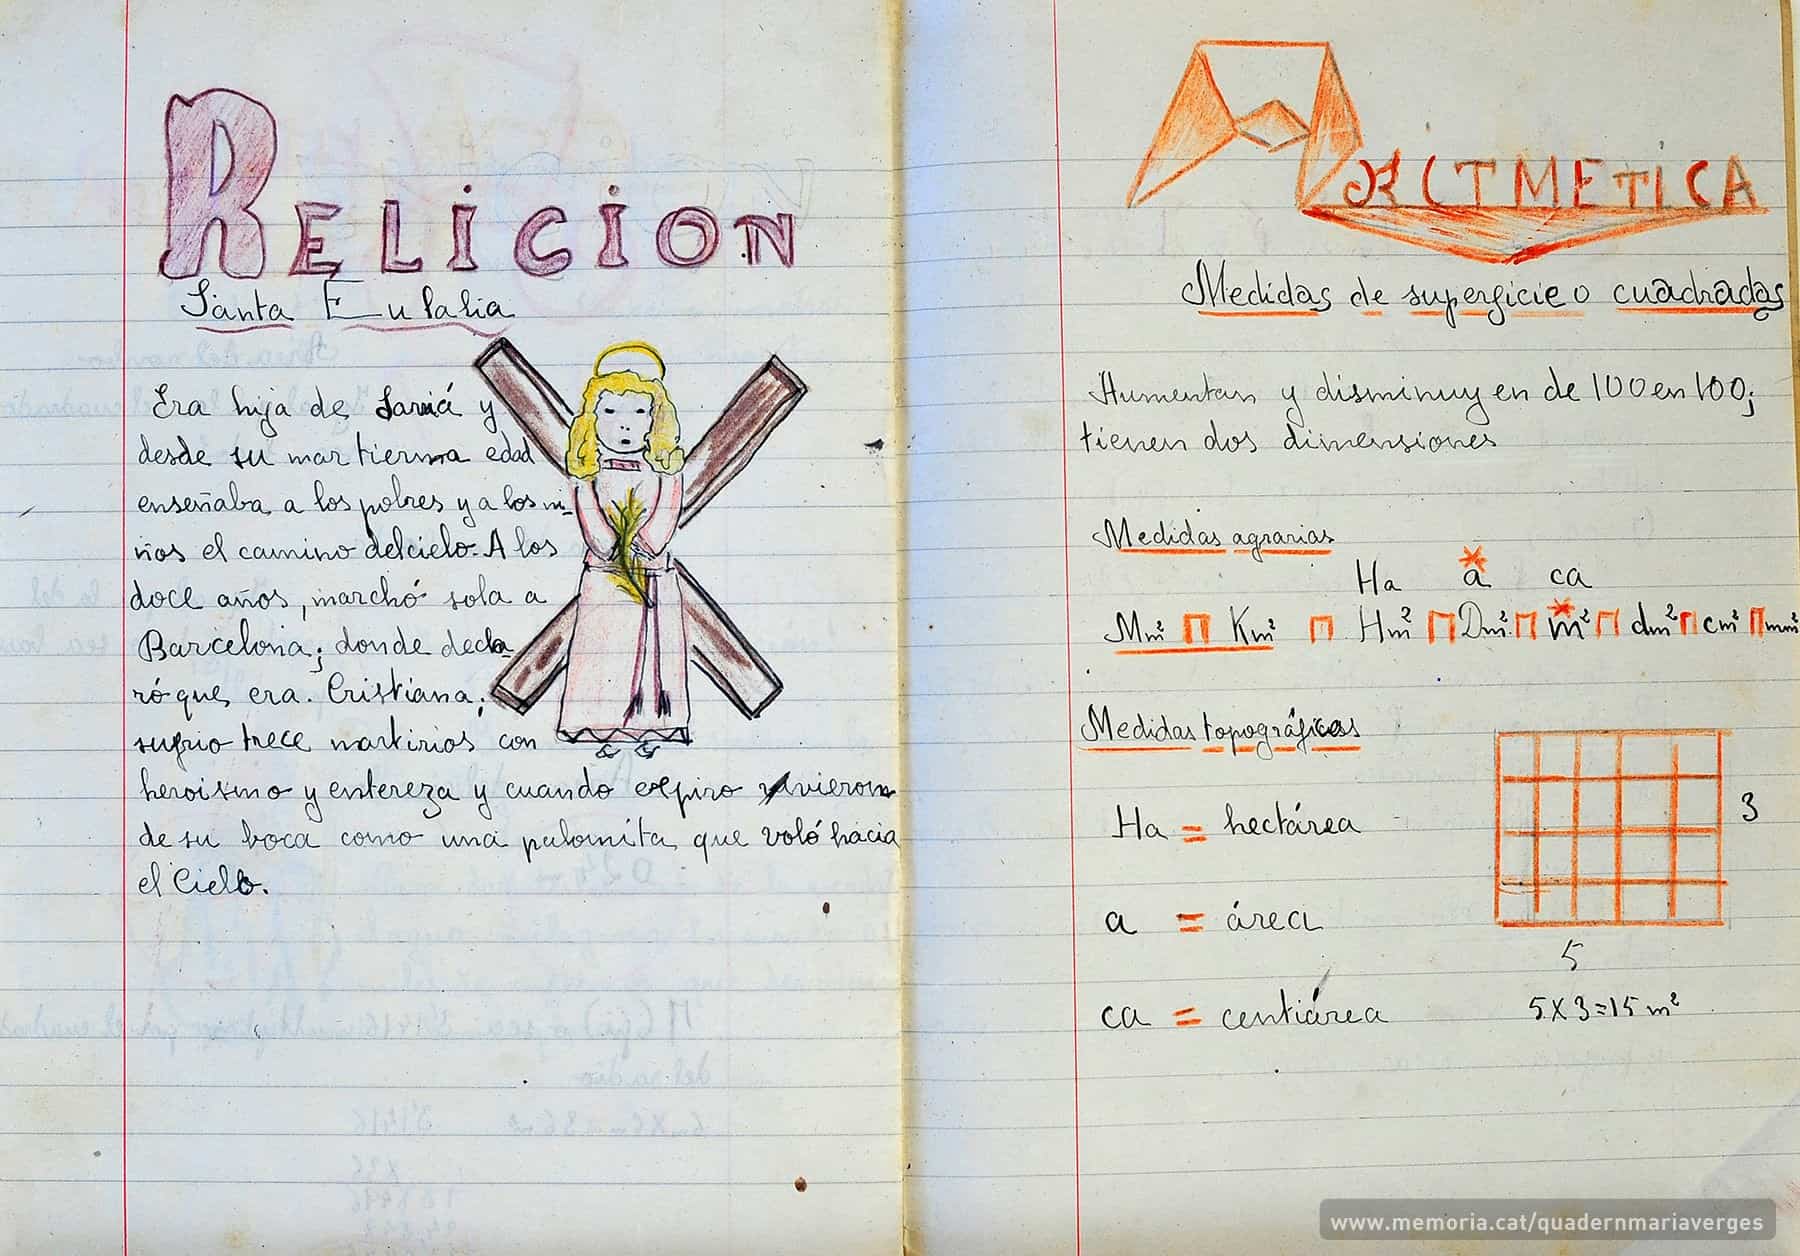 RELIGION
Santa Eulalia
Era hija de Sarriá y
desde su mas tierna edad
enseñaba a los pobres y a los ni-
ños el camino del cielo. A los
doce años, marchó sola a
Barcelona; donde decla-
ró que era. Cristiana;
sufrio trece martirios con
heroismo y entereza y cuando expiro vieron
de su boca como una palomita que voló hacia
el Cielo.
ARITMETICA
Medidas de superficie o cuadradas
Aumentan y disminuyen de 100 en 100;
tienen dos dimensiones
Medidas agrarias
Ha a ca
Mm² Km² Hm² Dm² m² dm² cm² mm²
Medidas topográficas
Ha = hectárea
3
a = área
5
ca = centiárea
5 x 3 = 15 m²
www.memoria.cat/quadernmariaverges